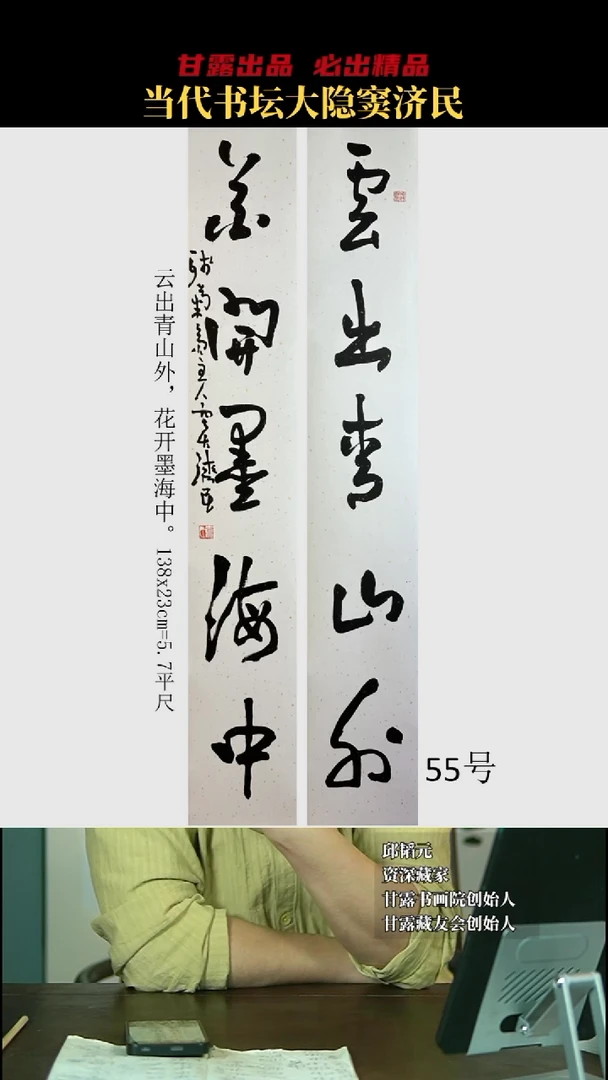 甘露出品 必出精品
当代书坛大隐窦济民
雲出青山外
花開墨海中
云出青山外，花开墨海中。138x23cm=5.7平尺
55号
邱韬元
资深藏家
甘露书画院创始人
甘露藏友会创始人